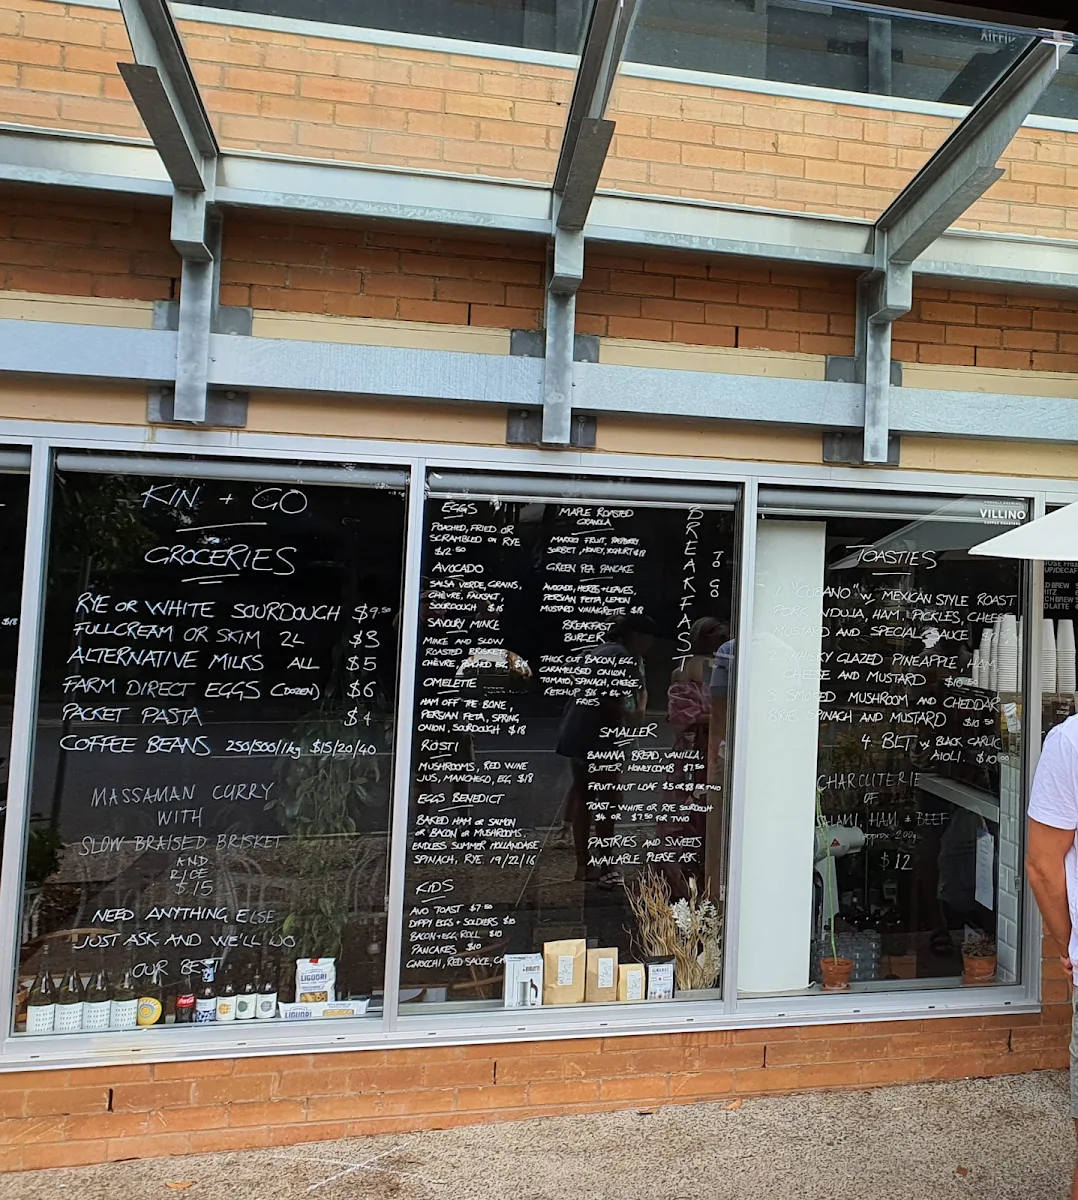 KIN + GO
GROCERIES
RYE OR WHITE SOURDOUGH $9.50
FULLCREAM OR SKIM 2L $3
ALTERNATIVE MILKS ALL $5
FARM DIRECT EGGS (DOZEN) $6
PACKET PASTA $4
COFFEE BEANS 250/500/1kg $15/20/40
MASSAMAN CURRY
WITH
SLOW BRAISED BRISKET
AND
RICE
$15
NEED ANYTHING ELSE
JUST ASK AND WE'LL DO
OUR BEST
LIGUORI
LIGUORI
EGGS
POACHED, FRIED OR
SCRAMBLED ON RYE
$12.50
AVOCADO
SALSA VERDE, GRAINS,
CHÈVRE,
SOURDOUGH $16
SAVOURY MINCE
MINCE AND SLOW
ROASTED BRISKET,
CHÈVRE, POACHED EGG,
OMELETTE
HAM OFF THE BONE,
PERSIAN FETA, SPRING
ONION, SOURDOUGH $18
RÖSTI
MUSHROOMS, RED WINE
JUS, MANCHEGO, EGG, $18
EGGS BENEDICT
BAKED HAM OR SALMON
OR BACON OR MUSHROOMS.
ENDLESS SUMMER HOLLANDAISE,
SPINACH, RYE 19/22/16
KIDS
AVO TOAST $7.50
DIPPY EGGS + SOLDIERS $10
BACON + EGG ROLL $10
PANCAKES $10
GNOCCHI, RED SAUCE, CH
MAPLE ROASTED
GRANOLA
MARKET FRUIT, RASPBERRY
SORBET, HONEY, YOGHURT $18
GREEN PEA PANCAKE
AVOCADO, HERBS + LEAVES,
PERSIAN FETA, LEMON
MUSTARD VINAIGRETTE $18
BREAKFAST
BURGER
THICK CUT BACON, EGG,
CARAMELISED ONION,
TOMATO, SPINACH, CHEESE,
KETCHUP $16 + $4 W
FRIES
SMALLER
BANANA BREAD, VANILLA,
BUTTER, HONEYCOMB $7.50
FRUIT + NUT LOAF $5 OR $8 FOR TWO
TOAST - WHITE OR RYE SOURDOUGH
$4 OR $7.50 FOR TWO
PASTRIES AND SWEETS
AVAILABLE. PLEASE ASK.
BREAKFAST
TO GO
VILLINO
COFFEE ROASTERS
TOASTIES
CUBANO" w MEXICAN STYLE ROAST
PORK, NDUJA, HAM, PICKLES, CHEESE
MUSTARD AND SPECIAL SAUCE
WHISKY GLAZED PINEAPPLE, HAM,
CHEESE AND MUSTARD $10.50
SMOKED MUSHROOM AND CHEDDAR
BRIE, SPINACH AND MUSTARD $10.50
4. BLT w BLACK GARLIC
AIOLI. $10
CHARCUTERIE
OF
SALAMI, HAM, + BEEF
approx 200g
$12